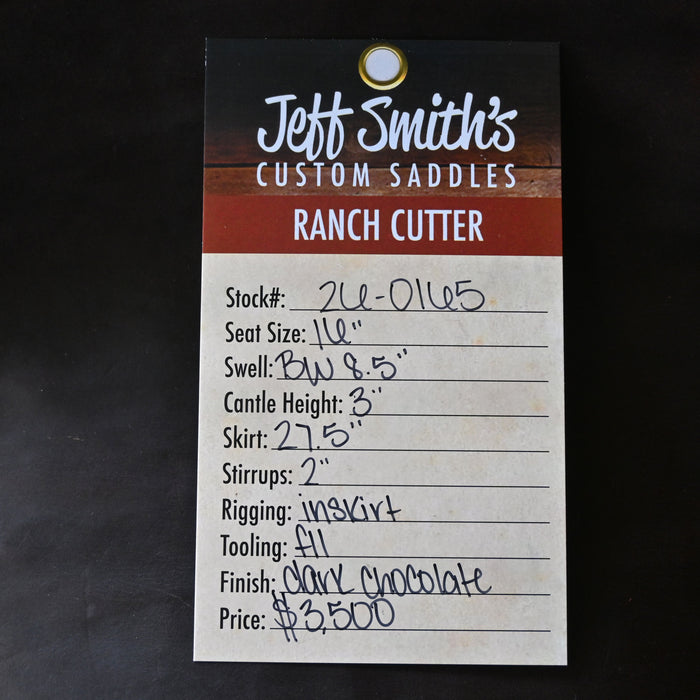 Jeff Smith's
CUSTOM SADDLES
RANCH CUTTER
Stock#: 26-0165
Seat Size: 16"
Swell: BW 8.5"
Cantle Height: 3"
Skirt: 27.5"
Stirrups: 2"
Rigging: inskirt
Tooling: f11
Finish: dark chocolate
Price: $3,500